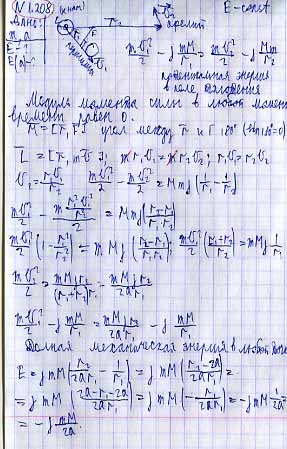 N 1.208
E - const
Дано:
m, a
E - ?
r₁
r₂
v₁
v₂
F
mv₁²/2 - γ mM/r₁ = mv₂²/2 - γ Mm/r₂
потенциальная энергия
в поле
Модуль момента силы в любой момент
времени равен 0.
M = [r, F] угол между r и F 180° (sin 180° = 0)
L = [r, m v]; m r₁ v₁ = m r₂ v₂; r₁ v₁ = r₂ v₂
v₂ = r₁v₁/r₂ mv₁²/2 - mv₂²/2 = M m γ (1/r₁ - 1/r₂)
mv₁²/2 (1 - r₁²/r₂²) = m M γ (r₂-r₁/r₁r₂)
mv₁²/2 = mMγr₂/(r₁+r₂)r₁ = mMγr₂/2ar₁
mv₁²/2 - γ mM/r₁ = mMγr₂/2ar₁ - γ mM/r₁
Полная механическая энергия в любой
E = γ m M (r₂/2ar₁ - 1/r₁) = γ m M (r₂-2a/2ar₁) =
= γ m M (2a-r₁-2a/2ar₁) = γ m M (- r₁/2ar₁) = - γ m M 1/2a =
= - γ mM/2a